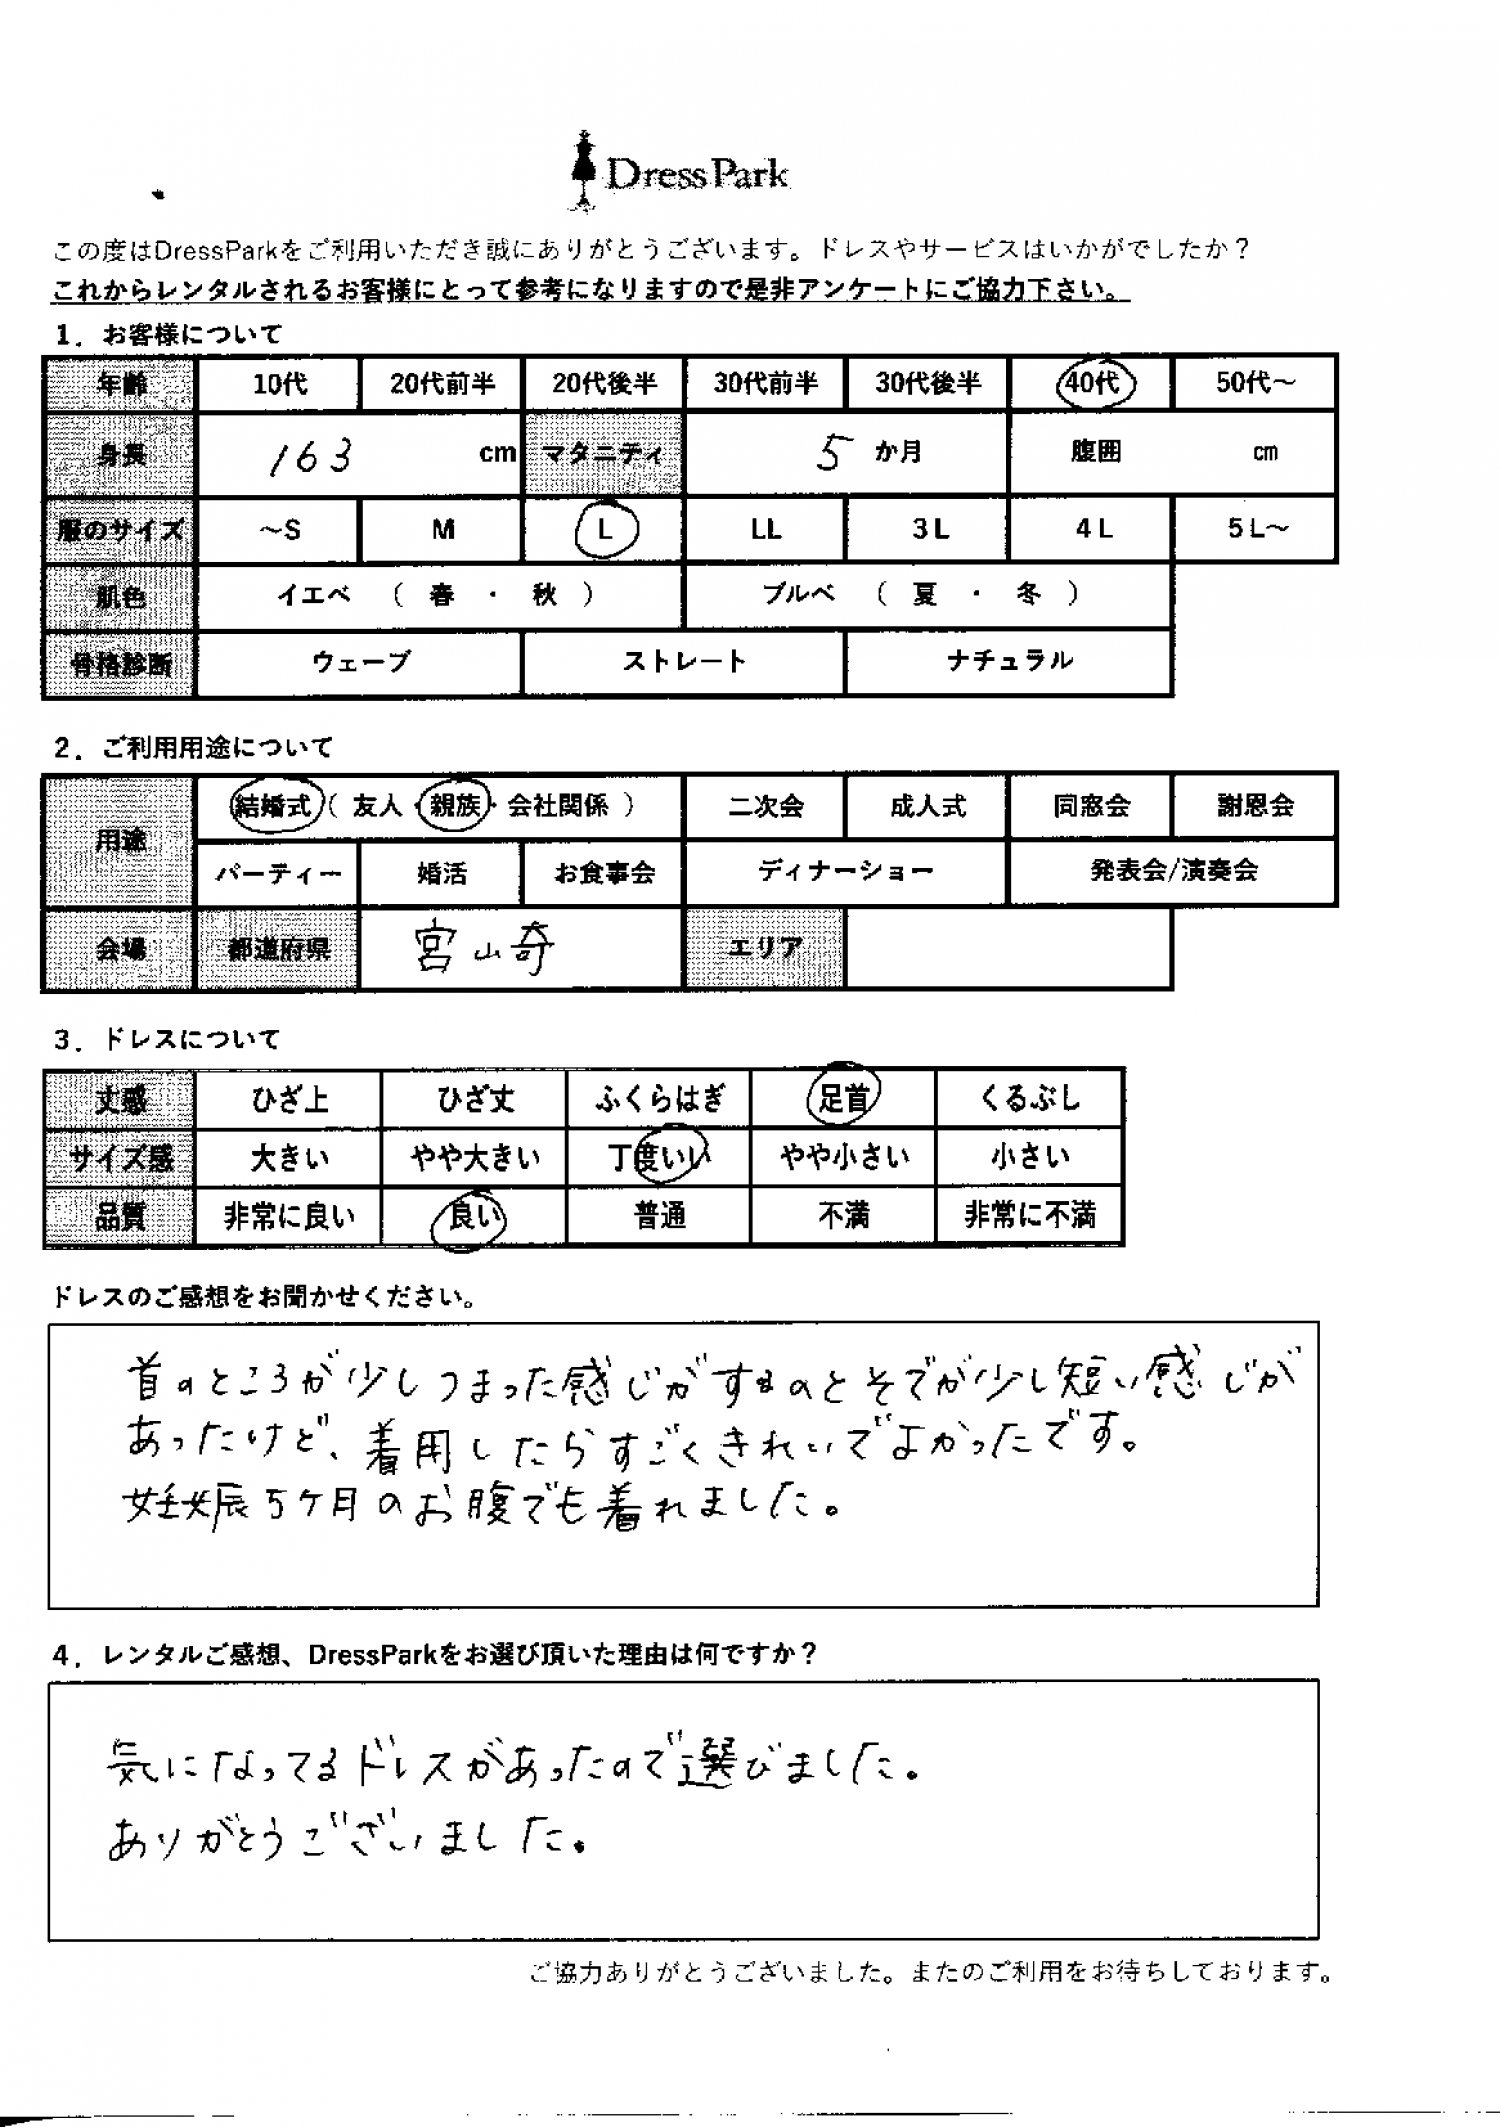 DressPark
この度はDressParkをご利用いただき誠にありがとうございます。ドレスやサービスはいかがでしたか？
これからレンタルされるお客様にとって参考になりますので是非アンケートにご協力下さい。
1．お客様について
年齢 10代 20代前半 20代後半 30代前半 30代後半 40代 50代～
身長 163 cm マタニティ 5 か月 腹囲 cm
服のサイズ ～S M L LL 3L 4L 5L～
肌色 イエベ （ 春 ・ 秋 ） ブルベ （ 夏 ・ 冬 ）
骨格診断 ウェーブ ストレート ナチュラル
2．ご利用用途について
用途 結婚式（ 友人・親族・会社関係 ） 二次会 成人式 同窓会 謝恩会
パーティー 婚活 お食事会 ディナーショー 発表会/演奏会
会場 都道府県 宮崎 エリア
3．ドレスについて
丈感 ひざ上 ひざ丈 ふくらはぎ 足首 くるぶし
サイズ感 大きい やや大きい 丁度いい やや小さい 小さい
品質 非常に良い 良い 普通 不満 非常に不満
ドレスのご感想をお聞かせください。
首のところが少しつまった感じがするのとそでが少し短い感じが
あったけど、着用したらすごくきれいでよかったです。
妊娠5ケ月のお腹でも着れました。
4．レンタルご感想、DressParkをお選び頂いた理由は何ですか？
気になってるドレスがあったので選びました。
ありがとうございました。
ご協力ありがとうございました。またのご利用をお待ちしております。